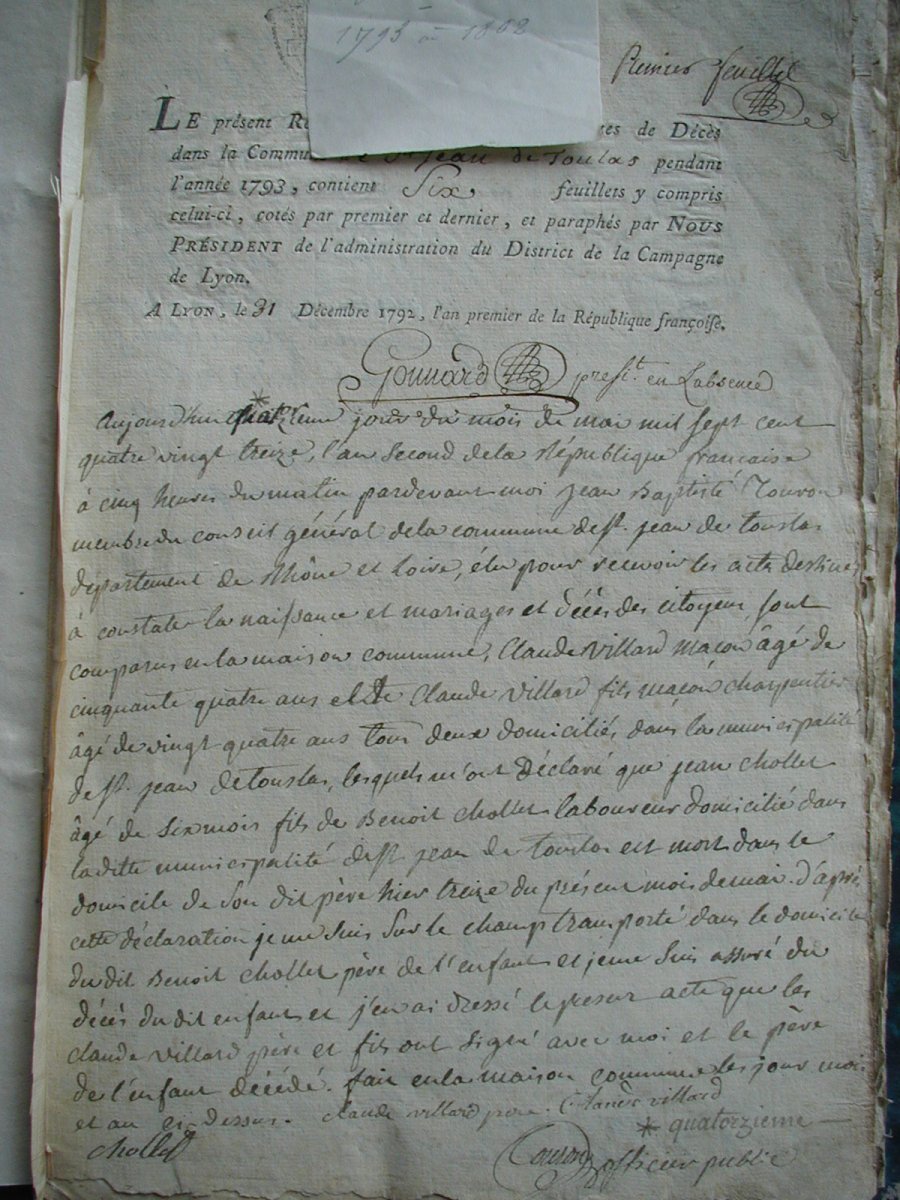 1793 à 1802
Premier feuillet
LE présent Re tes de Décès
dans la Commu de St Jean de Toulas pendant
l'année 1793, contient Six feuillets y compris
celui-ci, cotés par premier et dernier, et paraphés par NOUS
PRÉSIDENT de l'administration du District de la Campagne
de Lyon.
A LYON, le 31 Décembre 1792, l'an premier de la République françoise.
Gonnard presit. en Labsence
Aujourd'hui * jour du mois de mai mil sept cent
quatre vingt treize, l'an second de la République francaise
à cinq heures du matin pardevant moi jean Baptiste
membre du conseil général dela commune de st. jean de touslas
département de Rhône et Loire, élu pour recevoir les actes destinés
à constater la naissance et mariages et décès des citoyens sont
comparus en la maison commune, Claude Villard maçon âgé de
cinquante quatre ans et Claude Villard fils maçon charpentier
âgé de vingt quatre ans tous deux domiciliés dans la municipalité
de st. jean de touslas, lesquels m'ont déclaré que jean chollet
âgé de six mois fils de Benoit chollet laboureur domicilié dans
la ditte municipalité de st jean de touslas est mort dans le
domicile de son dit père hier treize du présent mois de mai. d'après
cette déclaration je me suis sur le champ transporté dans le domicile
du dit Benoit chollet père de l'enfant et je me suis assuré du
décès du dit enfant et j'en ai dressé le présent acte que les
claude villard père et fils ont signé avec moi et le père
de l'enfant décédé. fait en la maison commune les jour mois
et an ci dessus. claude villard pere. Claude villard
chollet * quatorzieme
officier public